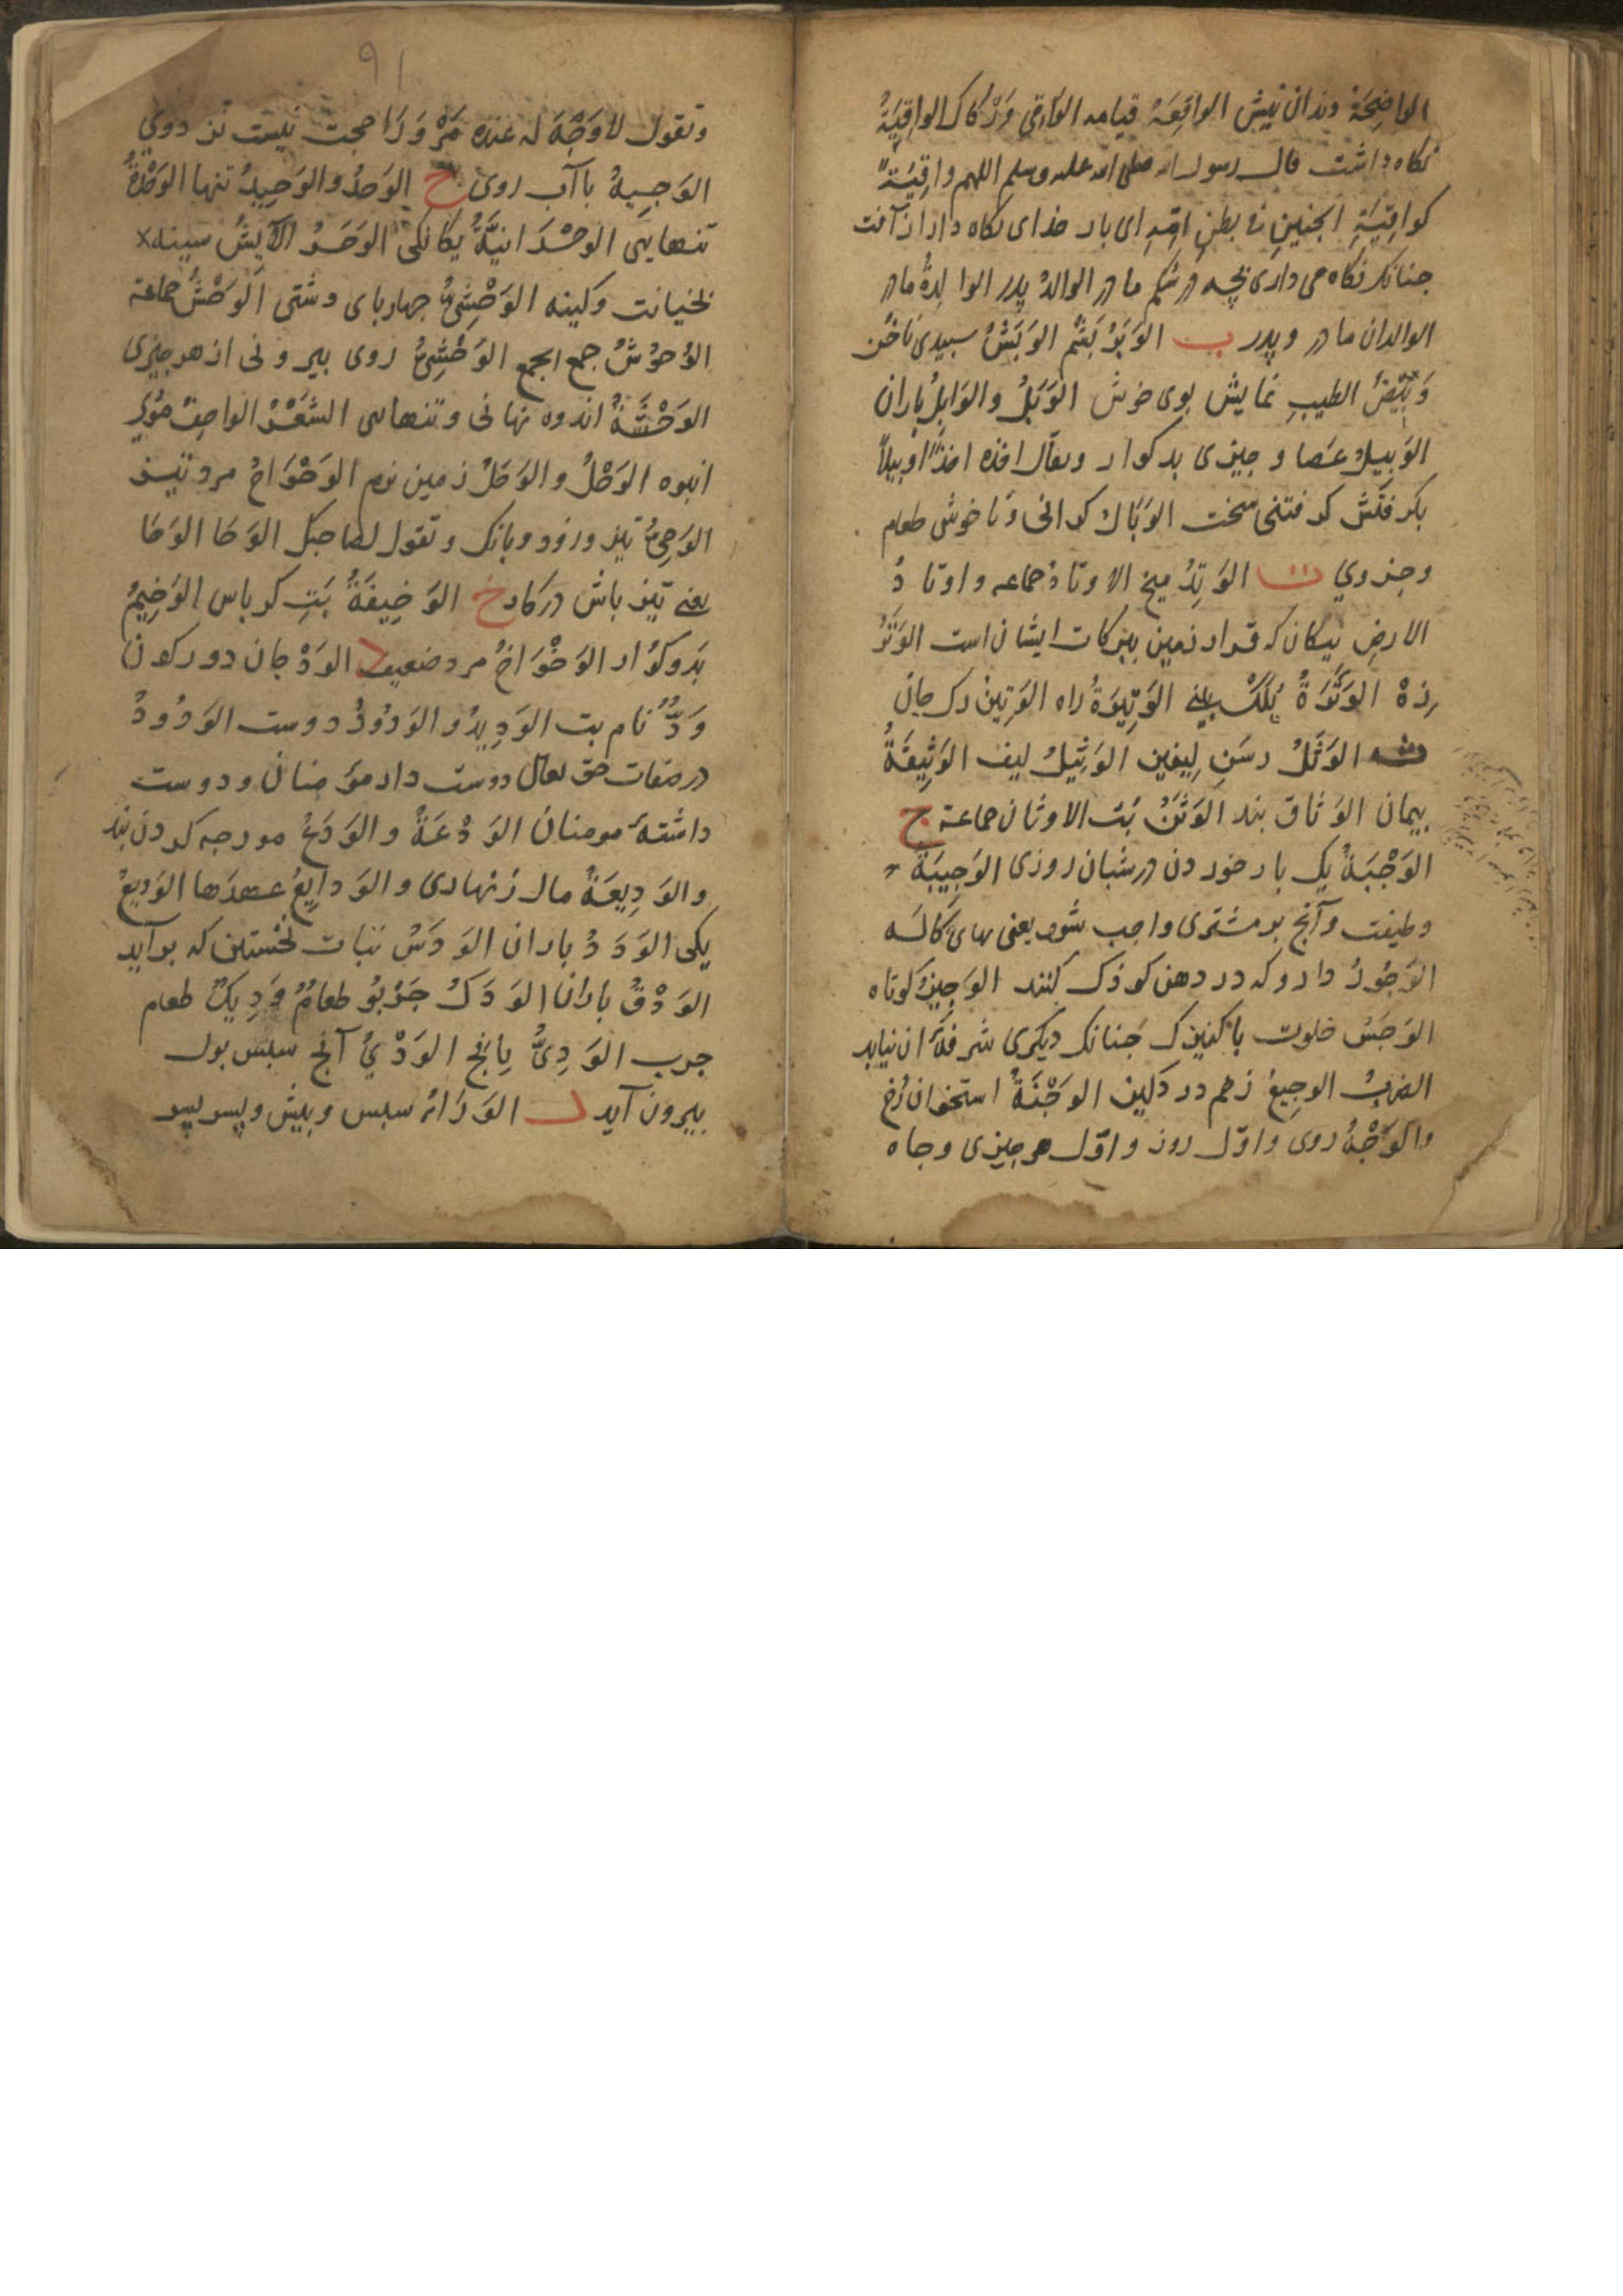 الواضِحَة دندان پیش الواقِعَة قیامه الواقی وَرکاک الواقِیَةُ
نکاه داشت قال رسول الله صلی الله علیه وسلم اللهم واقِیَةً
کواقِیَةِ الجنینِ فی بطنِ اُمِّهِ ای بار خدای نکاه دار از آفت
جنانک نکاه می داری بچه در شکم مادر الوالدُ پدر الوالِدةُ مادر
الوالدان مادر و پدر ب الوَبَرُ بَشم الوَبَشُ سبیدی ناخن
وَبِیصُ الطیبِ نمایش بوی خوش الوَبَلُ والوَابِلُ باران
الوَبِیلُ عَصا و جیزی بد کوار ویقال اخذه اخذًا وبیلًا
بکرفتش کرفتنی سخت الوَبَال کرانی و ناخوش طعام
وجزوي ت الوَتِدُ میخ الاوتادُ جماعه و اوتادُ
الارضِ نیکان که قرار زمین ببرکات ایشان است الوَتَرُ
زه الوَتَرَةُ بلک بینی الوَتِیرَةُ راه الوَتِینُ رک جان
ث الوَثَلُ رسَنِ لیفین الوَثِیلُ لیف الوَثِیقَةُ
بیمان الوَثاق بند الوَثَنُ بَت الاوثان جماعة ج
الوَجْبَةُ یک بار خوردن در شبان روزی الوَجِیبَةُ
وظیفت و آنج بر مشتری واجب شود یعنی بهای کاله
الوَجُورُ دارو که در دهن کوذک کنند الوَجِیزُ کوتاه
الوَجَسُ خلوت با کنیزک جنانک دیکری
الضربُ الوجِیعُ زخم دردکین الوَجْنَةُ استخوان رُخ
والوَجْهُ روی و اوّل روز و اوّل هر جیزی و جاه
٩١
وتقول لا وَجْهَ له عنده مَرْ وَرَا حجت نیست نزد وي
الوَجِیهُ باآب روی ح الوَحدُ والوَحِیدُ تنها الوَحْدَةُ
تنهایی الوحْدَانِیَّةُ یکانکی الوَحَرُ آلایش سینه
بخیانت و کینه الوَحْشِیُّ جهاربای دشتی الوَحْشُ جماعة
الوُحوُشُ جمع الجمع الوَحْشِیُّ روی بیرونی از هر جیزی
الوَحْشَةُ اندوه نهانی و تنهایی الشَعْرُ الواحِفُ موُی
انبوه الوَحْلُ والوَحَلُ زمین نرم الوَحْوَاحُ مرد تیز
الوَحِیُّ تیز و زود و بانک و تقول لصاحبک الوَحَا الوَحَا
یعنی تیز باش در کار خ الوَخِیفَةُ بَتِ کرباس الوَخِیمُ
بَد کوُار الوَخْوَاخُ مرد ضعیف د الوَدْجان دو رک کردن
وَدٌّ نام بت الوَدِیدُ والوَدُودُ دوست الوَدُودُ
در صفات حق تعالی دوست دار مؤمنان و دوست
داشتهٔ مومنان الوَدْعَةُ والوَدَعُ
والوَدِیعَةُ مال زنهاری والوَدایِعُ الوَدِیعُ
الوَدَسُ نبات نخستین که بر آید
الوَدْقُ باران الوَدَکُ جَرْبُو طعامٌ وَدِیکٌ طعام
جرب الوَدِیُّ الوَدْيُ آنج سبس بول
بیرون آید ر الوَرَاءُ سبس و پیش و پسر پسر